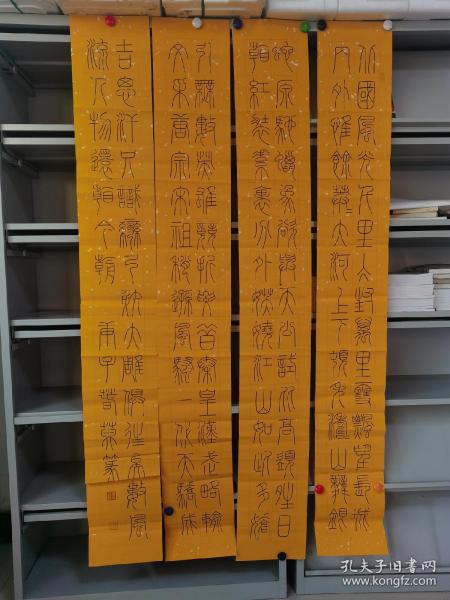 北國風光千里冰封萬里雪飄望長城
内外惟餘莽莽大河上下頓失滔滔山舞銀
蛇原馳蠟象欲與天公試比高須晴日
看紅裝素裹分外妖嬈江山如此多嬌
引無數英雄競折腰昔秦皇漢武略輸
文采唐宗宋祖稍遜風騷一代天驕成
吉思汗只識彎弓射大雕俱往矣數風
流人物還看今朝 庚子春
孔夫子旧书网
www.kongfz.com